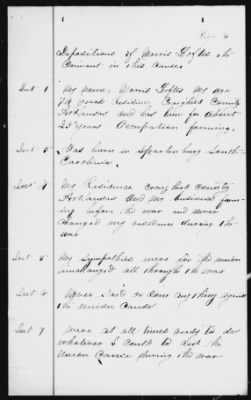 Depositions of Morris the
Claimant in this cause
Int 1 My name, Morris My age
years Residence Craighead County
Arkansas and has been for about
25 years Occupation farming.
Int 2 Was born in Spartenburg South
Carolina.
Int 4 My Residence Craighead County
Arkansas and my business farm-
ing before the war and never
changed my residence during the
war
Int 5 My Sympathies were for the union
unchanged all through the war
Int 6 Never said or done any thing against
the union cause
Int 7 Were at all times ready to do
whatever I could to aid the
union cause during the war